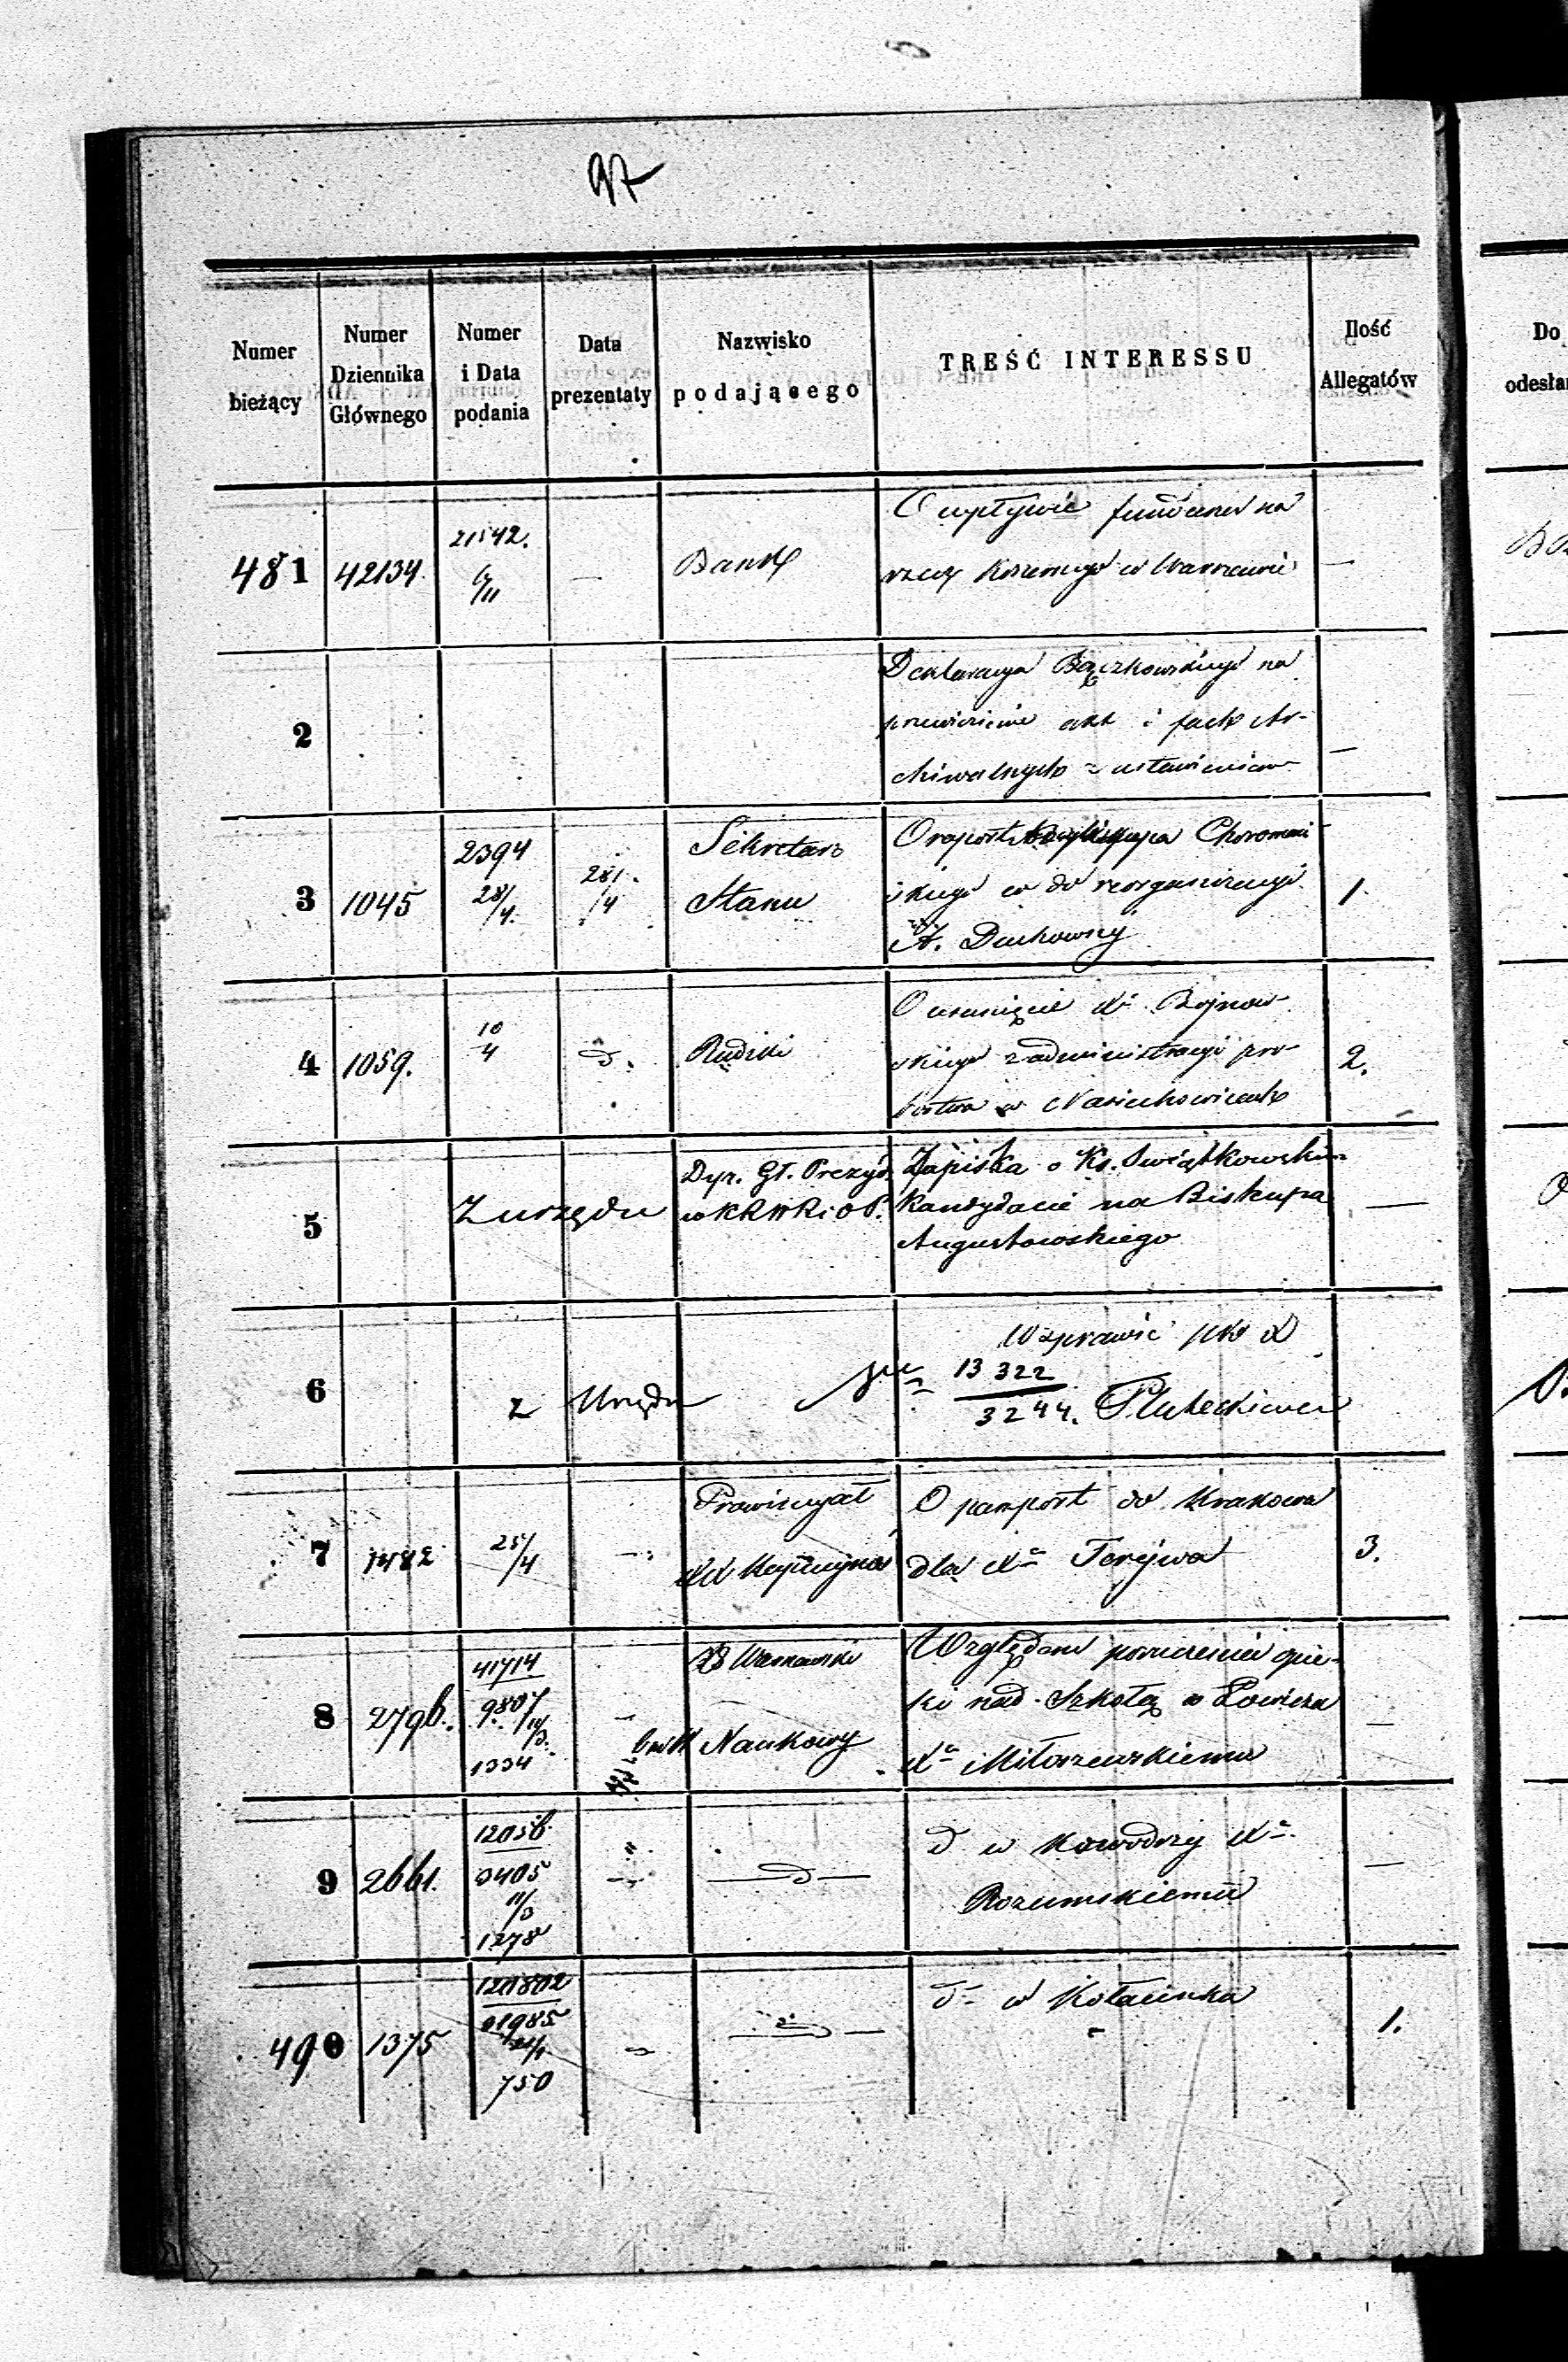 97
Numer bieżący
Numer Dziennika Głównego
Numer i Data podania
Data prezentaty
Nazwisko podającego
TREŚĆ INTERESSU
Ilość Allegatów
Do
481
42134.
21542.
6/11
—
Bank
O wpływie na
rzecz w Warszawie
—
2
Deklaracya Bączkowskiego na
przewiezienie akt i fach Ar-
chiwalnych z ustawieniem
—
3
1045
2394
28/4.
28/4
Sekretarz
Stanu
O raport Choromań
skiego co do
A. Duchownej
1.
4
1059.
10
4
d.
Rudzki
O usunięcie Xa Bojnow-
skiego z administracyi pro-
bostwa w
2.
5
Z urzędu
Dyr. Gł. Prezyd.
w KRWR i OP.
Zapiska o Ks. Świątkowskim
Kandydacie na Biskupa
Augustowskiego
—
6
z Urzędu
W sprawie
13 322
3244.
7
1482
25/4
—
Prowincyał
XX Kapucynów
O paszport do Krakowa
dla Xa
3.
8
2796.
41714
9807
1334
—
Warszawski
Naukowy
Względem powierzenia opie-
ki nad Szkołą w Łowiczu
Xa Miłoszewskiemu
—
9
2661.
12056
3405
11/3
1278
"
—d—
d w Kawodrzy Xa
Rozumskiemu
—
490
1375
120802
01985
750
d
d- w Kołacinku
1.